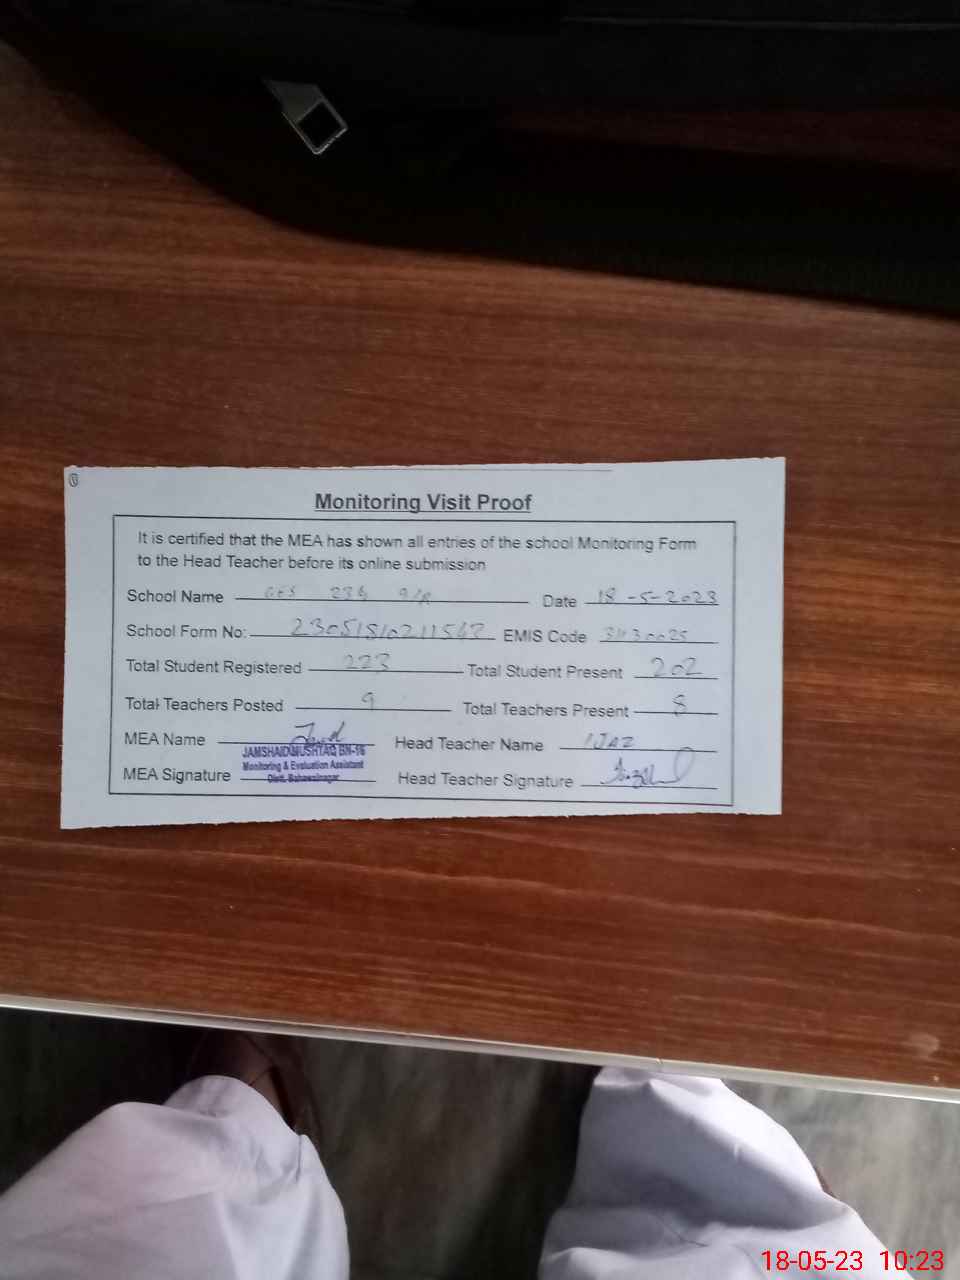 Monitoring Visit Proof
It is certified that the MEA has shown all entries of the school Monitoring Form
to the Head Teacher before its online submission
School Name GES 9/R Date 18-5-2023
School Form No: EMIS Code
Total Student Registered 223 Total Student Present 202
Total Teachers Posted 9 Total Teachers Present 8
MEA Name Head Teacher Name IJAZ
JAMSHAID MUSHTAQ BN-16
Monitoring & Evaluation Assistant
Distt. Bahawalnagar
MEA Signature Head Teacher Signature
18-05-23 10:23